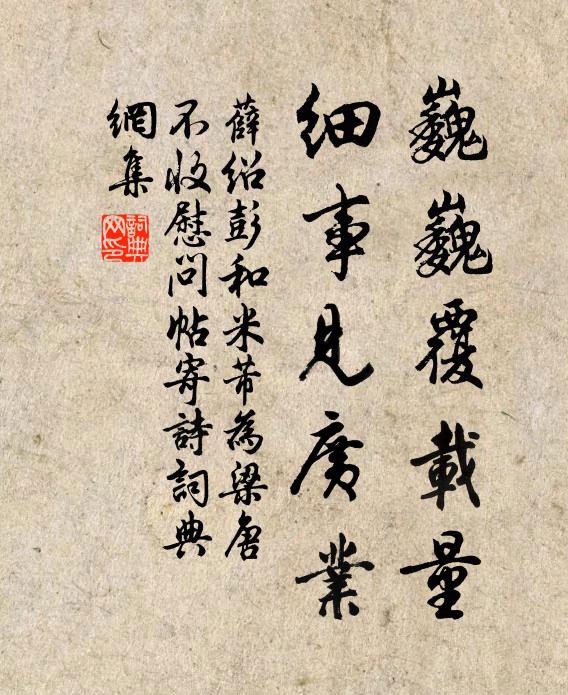 巍巍覆載量
細事見廣業
薛紹彭和米芾為梁唐
不收慰問帖寄詩詞典
網集
詞典網印